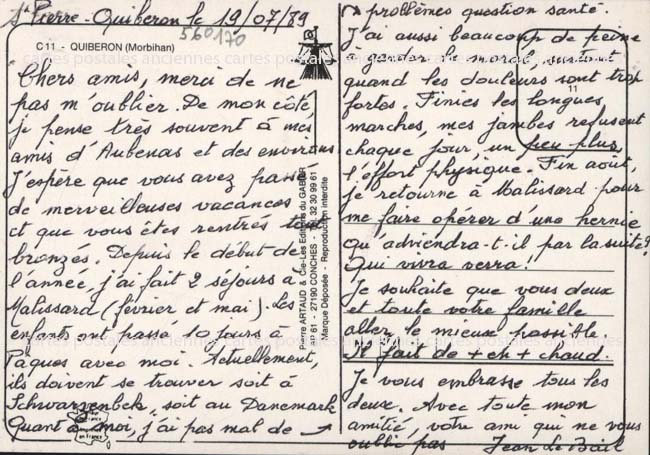 St Pierre-Quiberon le 19/07/89
560170
C 11 - QUIBERON (Morbihan)
Chers amis, merci de ne
pas m'oublier. De mon côté,
je pense très souvent à mes
amis d'Aubenas et des environs
J'espère que vous avez passé
de merveilleuses vacances
et que vous êtes rentrés tous
bronzés. Depuis le début de
l'année, j'ai fait 2 séjours à
Malissard (février et mai). Les
enfants ont passé 10 jours à
Pâques avec moi. Actuellement,
ils doivent se trouver soit à
Schwarzenbek, soit au Danemark
Quant à moi, j'ai pas mal de →
Pierre ARTAUD & Cie-Les Editions du GABIER
BP 61 - 27190 CONCHES - 32 30 99 61
Marque Déposée - Reproduction interdite
→ problèmes question santé.
J'ai aussi beaucoup de peine
à garder le moral surtout
quand les douleurs sont trop
fortes. Finies les longues
11
marches, mes jambes refusent
chaque jour, un peu plus,
l'effort physique. Fin août,
je retourne à Malissard pour
me faire opérer d'une hernie
qu'adviendra-t-il par la suite?
Qui vivra verra!
Je souhaite que vous deux
et toute votre famille
alliez le mieux possible
Il fait de + en + chaud.
Je vous embrasse tous les
deux. Avec toute mon
amitié, votre ami qui ne vous
oublie pas Jean Le Bail
cartes postales anciennes cartes postales anciennes cartes postales anciennes